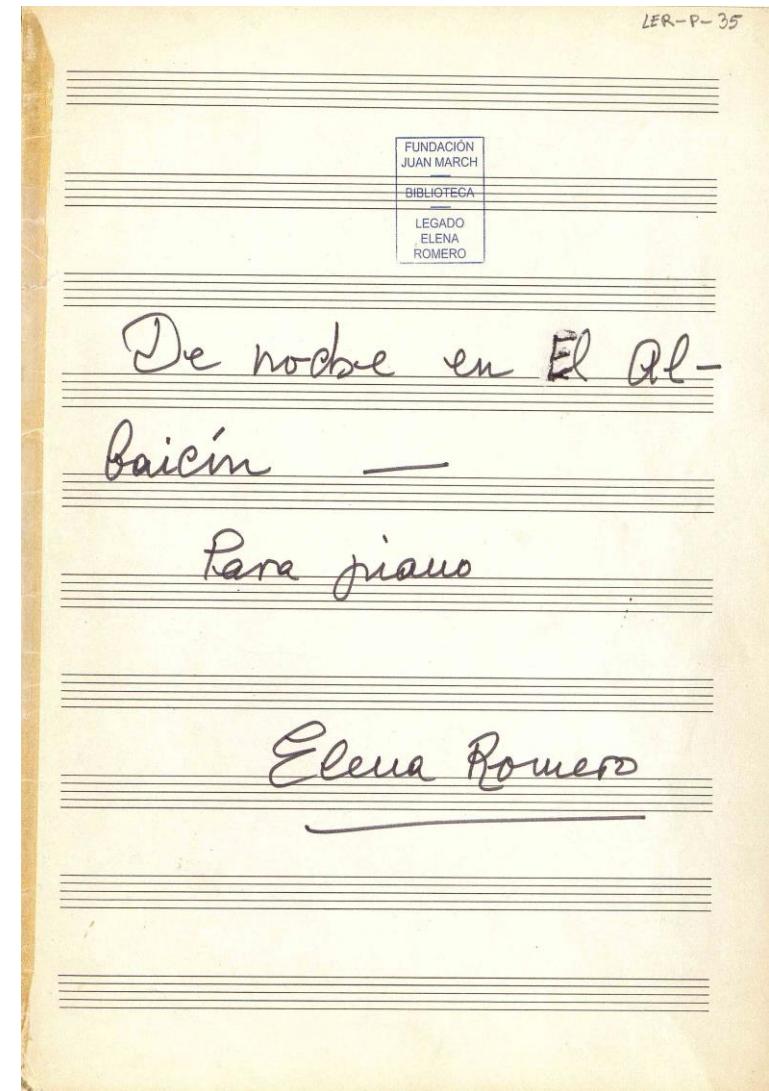 LER-P-35
FUNDACIÓN
JUAN MARCH
BIBLIOTECA
LEGADO
ELENA
ROMERO
De noche en El Al-
baicín —
Para piano
Elena Romero